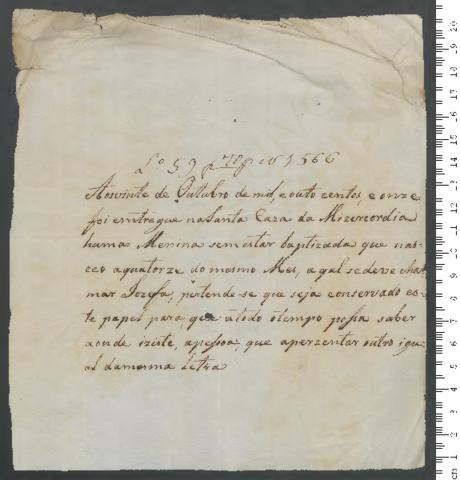 Lº 59 nº 1566
Aos vinte de Outubro de mil, e outo centos, e onze
foi emtregue na Santa Caza da Mizercordia
huma Menina sem estar baptizada que nas-
ceo aquatorze do mesmo Mes, aqal se deve cha-
mar Jozefa; pertende-se que seja conservado es-
te papel para que atodo otempo possa saber
aonde iziste, apessoa, que aperzentar outro igu-
al damesma letra